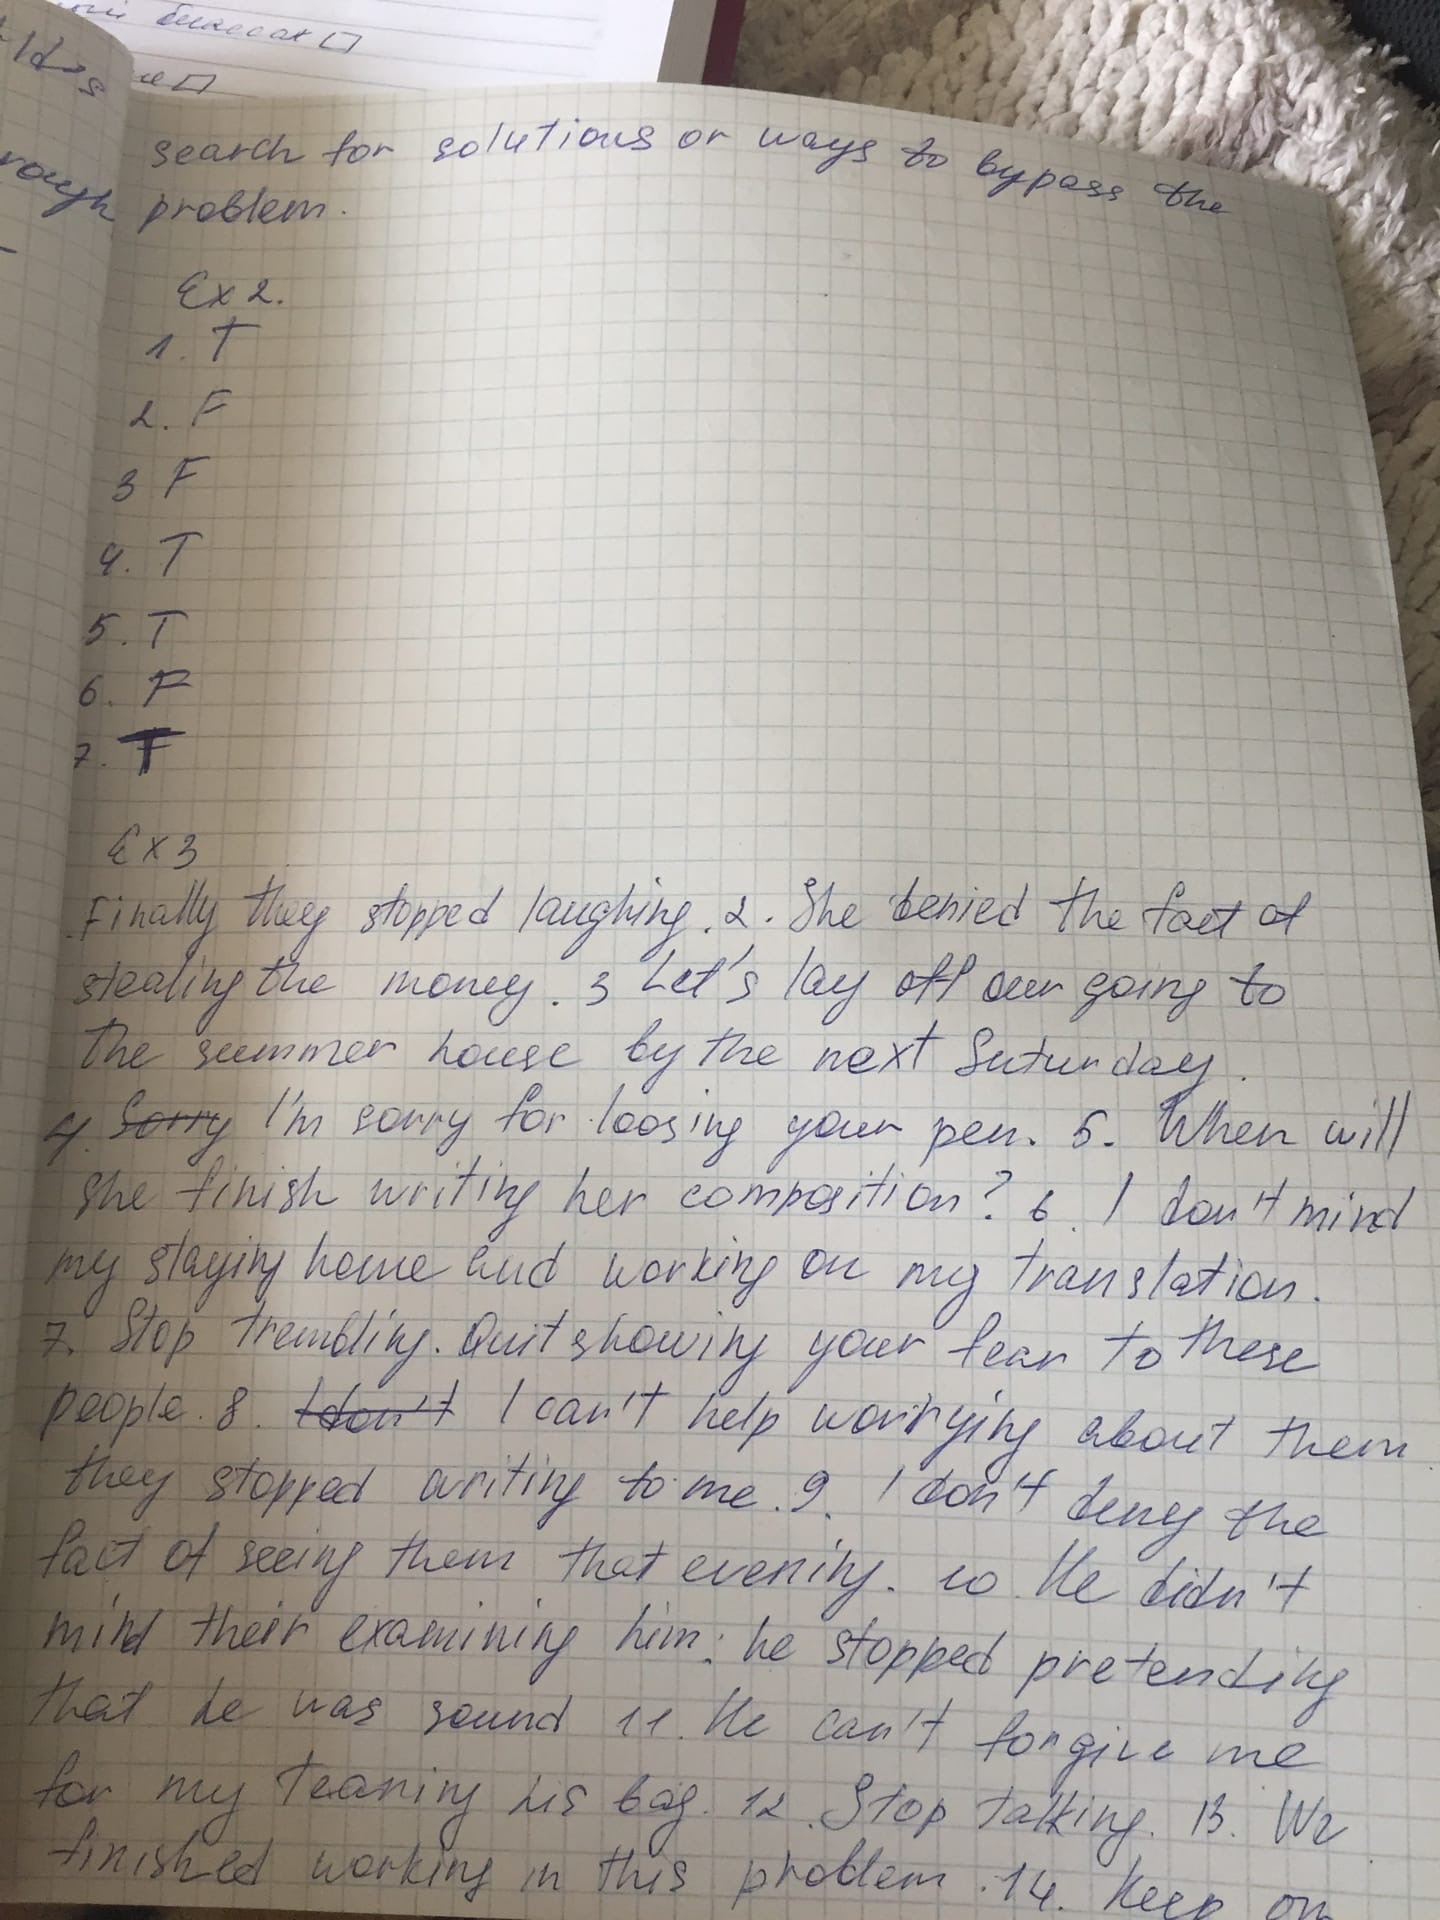 search for solutions or ways to bypass the
problem.
Ex 2.
1. T
2. F
3 F
4. T
5. T
6. F
7. T
Ex 3
Finally they stopped laughing. 2. She denied the fact of
stealing the money. 3 Let's lay off our going to
the summer house by the next Suturday.
4. Sorry I'm sorry for loosing your pen. 5. When will
she finish writing her composition? 6. I don't mind
my staying home and working on my translation.
7. Stop trembling. Quit showing your fear to these
people. 8. I don't I can't help worrying about them
they stopped writing to me. 9. I don't deny the
fact of seeing them that evening. 10. He didn't
mind their examining him: he stopped pretending
that he was sound 11. He can't forgive me
for my tearing his bag. 12. Stop talking. 13. We
finished working in this problem. 14. Keep on